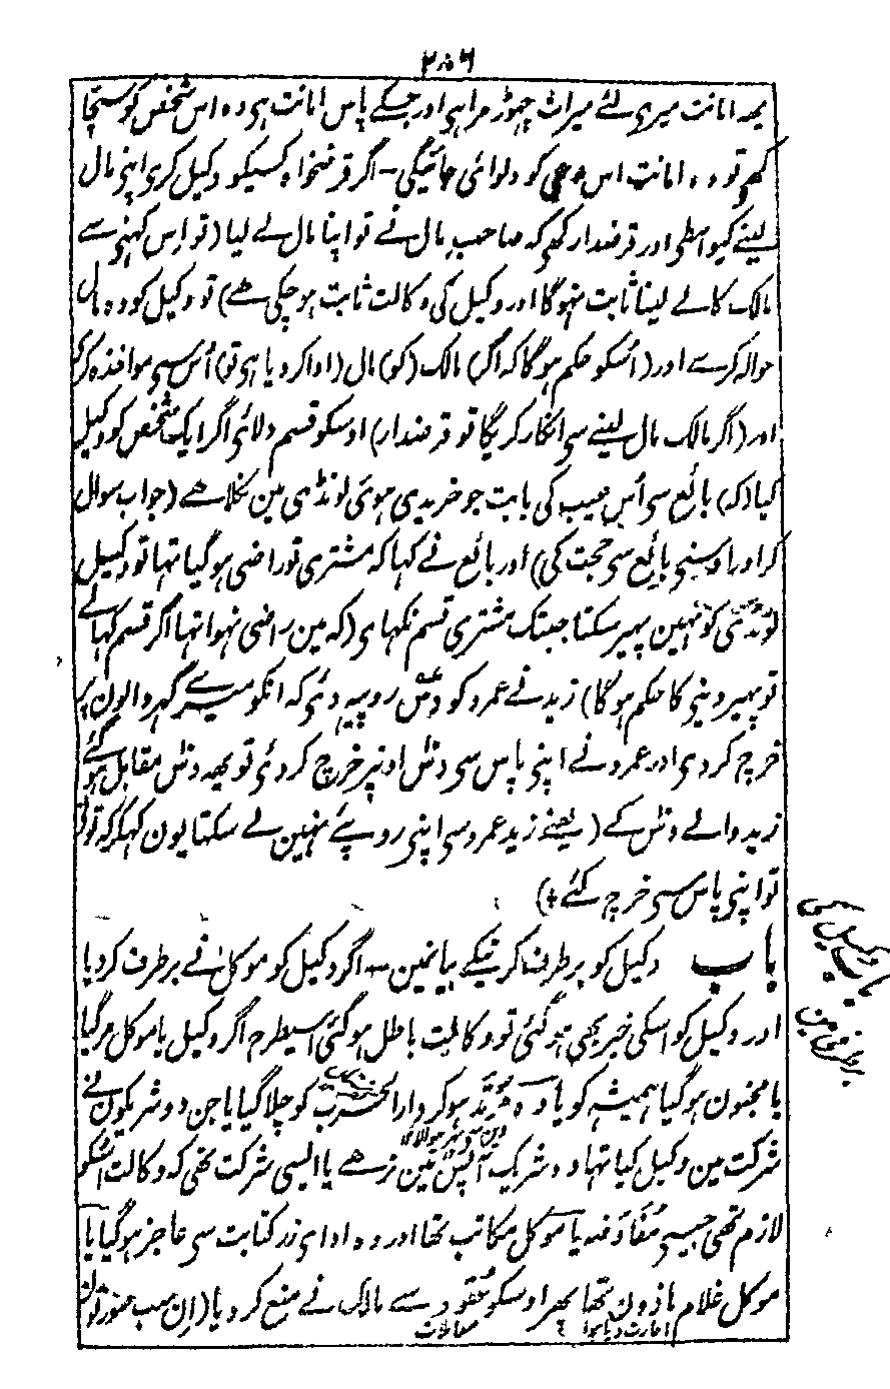 ۲۸۶
یہہ امانت میری لئے میراث چھوڑ مرا ہی اور جسکے پاس امانت ہی وہ اس شخص کو سچا
کہی تو وہ امانت اس مدعی کو دلوائی جائیگی۔ اگر قرضخواہ کسیکو وکیل کری اپنی مال
لینے کیواسطی اور قرضدار کہی کہ صاحب مال نے تو اپنا مال لے لیا (تو اس کہنی سے
مالک کا لے لینا ثابت نہوگا اور وکیل کی وکالت ثابت ہو چکی ہے) تو وکیل کو وہ مال
حوالہ کرے اور (اُسکو حکم ہوگا کہ اگر) مالک (کو) مال (ادا کر دیا ہی تو) اُس سی مواخذہ کر
اور (اگر مالک مال لینے سی انکار کریگا تو قرضدار) اوسکو قسم دلائی اگر ایک شخص کو وکیل
کیا (کہ) بائع سی اُس عیب کی بابت جو خریدی ہوئی لونڈی مین نکلا ہے (جواب سوال
کر اور اوسنی بائع سی حجت کی) اور بائع نے کہا کہ مشتری تو راضی ہو گیا تہا تو وکیل
لونڈی کو نہین پھیر سکتا جبتک مشتری قسم نکہای (کہ مین راضی نہوا تہا اگر قسم کہا لے
تو پھیر دینی کا حکم ہوگا) زید نے عمرو کو دس روپیہ دئی کہ انکو میرے گھر والون پر
خرچ کر دی اور عمرو نے اپنی پاس سی دس اونپر خرچ کر دئی تو یہہ دس مقابل ہو گئے
زید والے دس کے (یعنے زید عمرو سی اپنی روپئے نہین لے سکتا یون کہکر کہ تونی
تو اپنی پاس سی خرچ کئے)
باب وکیل کو برطرف کرنیکے بیانمین۔ اگر وکیل کو موکل نے برطرف کر دیا
اور وکیل کو اسکی خبر بھی ہو گئی تو وکالت باطل ہو گئی اسیطرح اگر وکیل یا موکل مر گیا
یا مجنون ہو گیا ہمیشہ کو یا وہ مُرتد ہو کر دار الحرب کو چلا گیا یا جن دو شریکون نے
شرکت مین وکیل کیا تہا وہ شریک آپس مین نرہے یا ایسی شرکت تھی کہ وکالت اسکو
دین سی پھر جولا
لازم تھی جیسی مُفاوَضہ یا موکل مکاتب تھا اور وہ ادای زر کتابت سی عاجز ہو گیا یا
موکل غلام ماذون تھا پھر اوسکو عُقود سے مالک نے منع کر دیا (ان سب صورتون
اجازت دیا ہوا معاملات
باب وکیل کی
برطرفی مین